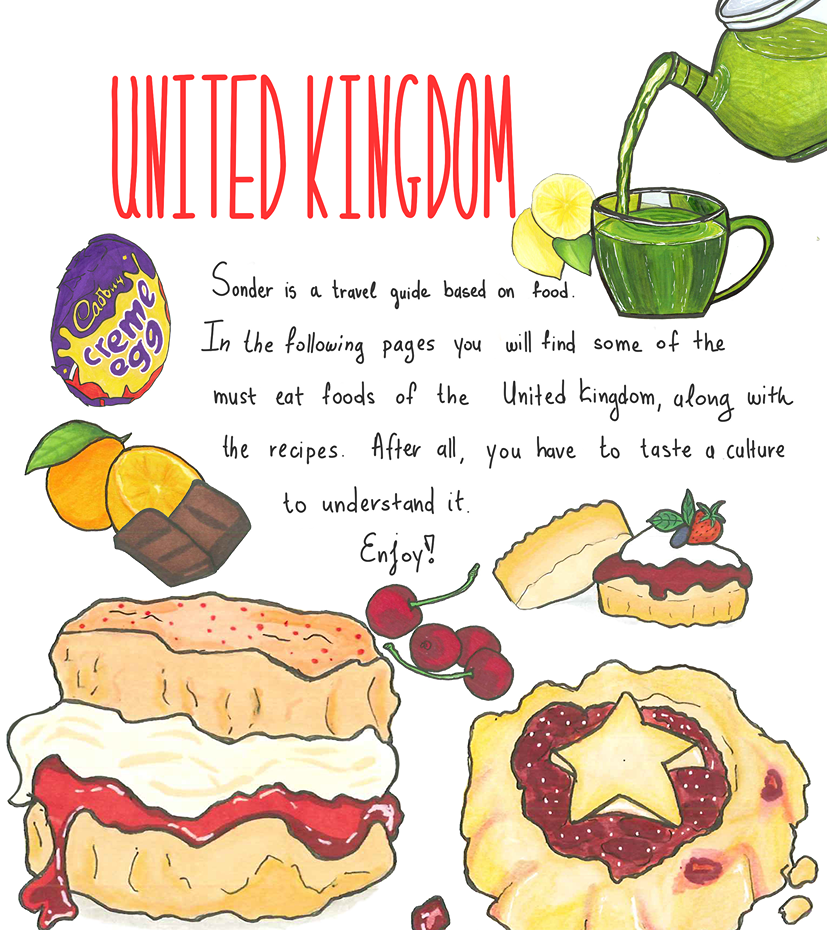 UNITED KINGDOM
Cadbury
creme
egg
Sonder is a travel guide based on food.
In the following pages you will find some of the
must eat foods of the United Kingdom, along with
the recipes. After all, you have to taste a culture
to understand it.
Enjoy!